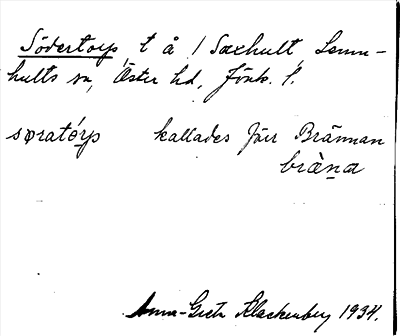 Södertorp, t å 1 Saxhult, Lemn-
hults sn, Öster hd, Jönk. l.
søratórp kallades förr Brännan
brɛ̀na
Anna-Greta Klackenberg 1934.